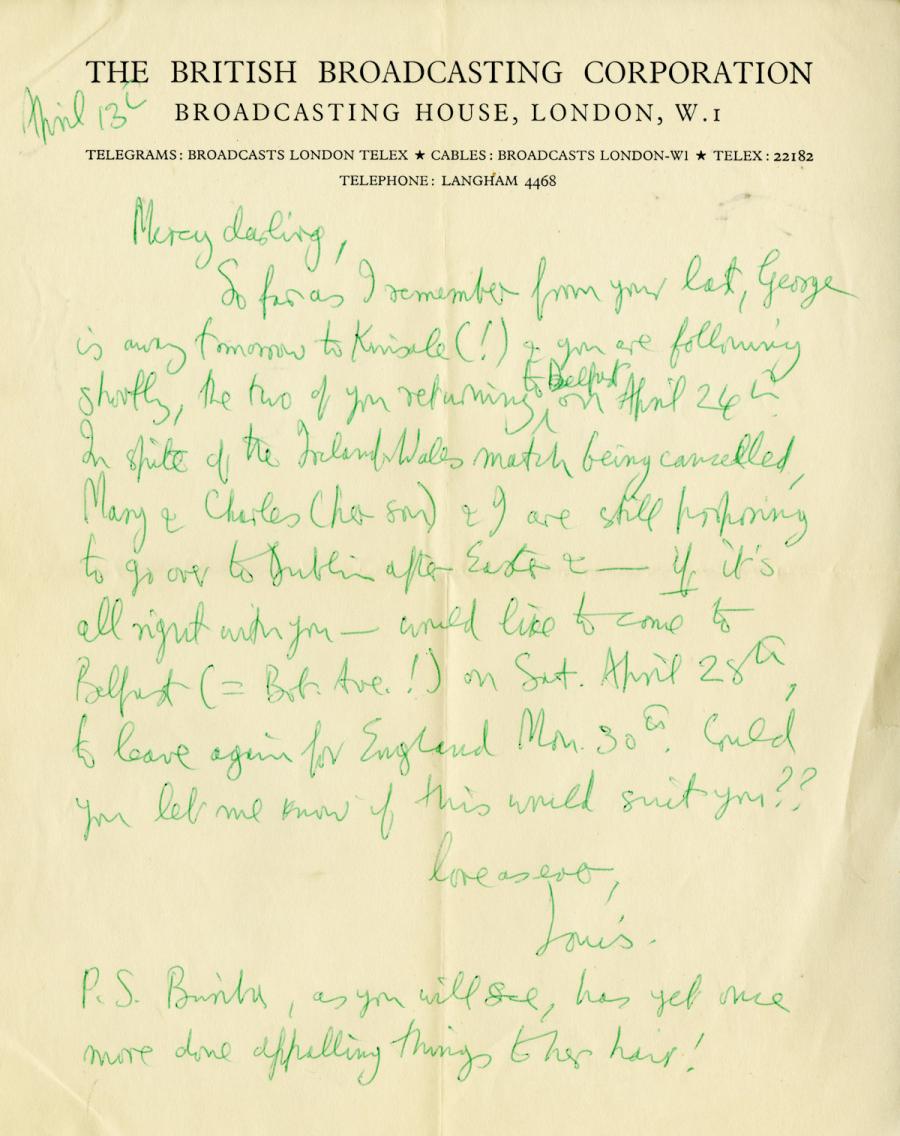 THE BRITISH BROADCASTING CORPORATION
April 13th
BROADCASTING HOUSE, LONDON, W.1
TELEGRAMS: BROADCASTS LONDON TELEX ★ CABLES: BROADCASTS LONDON-W1 ★ TELEX: 22182
TELEPHONE: LANGHAM 4468
Mercy darling,
So far as I remember from your last, George
is away tomorrow to Kinsale (!) & you are following
shortly, the two of you returning to Belfast on April 24th.
In spite of the Ireland-Wales match being cancelled,
Mary & Charles (her son) & I are still proposing
to go over to Dublin after Easter & — if it's
all right with you — would like to come to
Belfast (= Bot. Ave.!) on Sat. April 28th,
to leave again for England Mon. 30th. Could
you let me know if this would suit you??
love as ever,
Louis.
P.S. Bimba, as you will see, has yet once
more done appalling things to her hair!